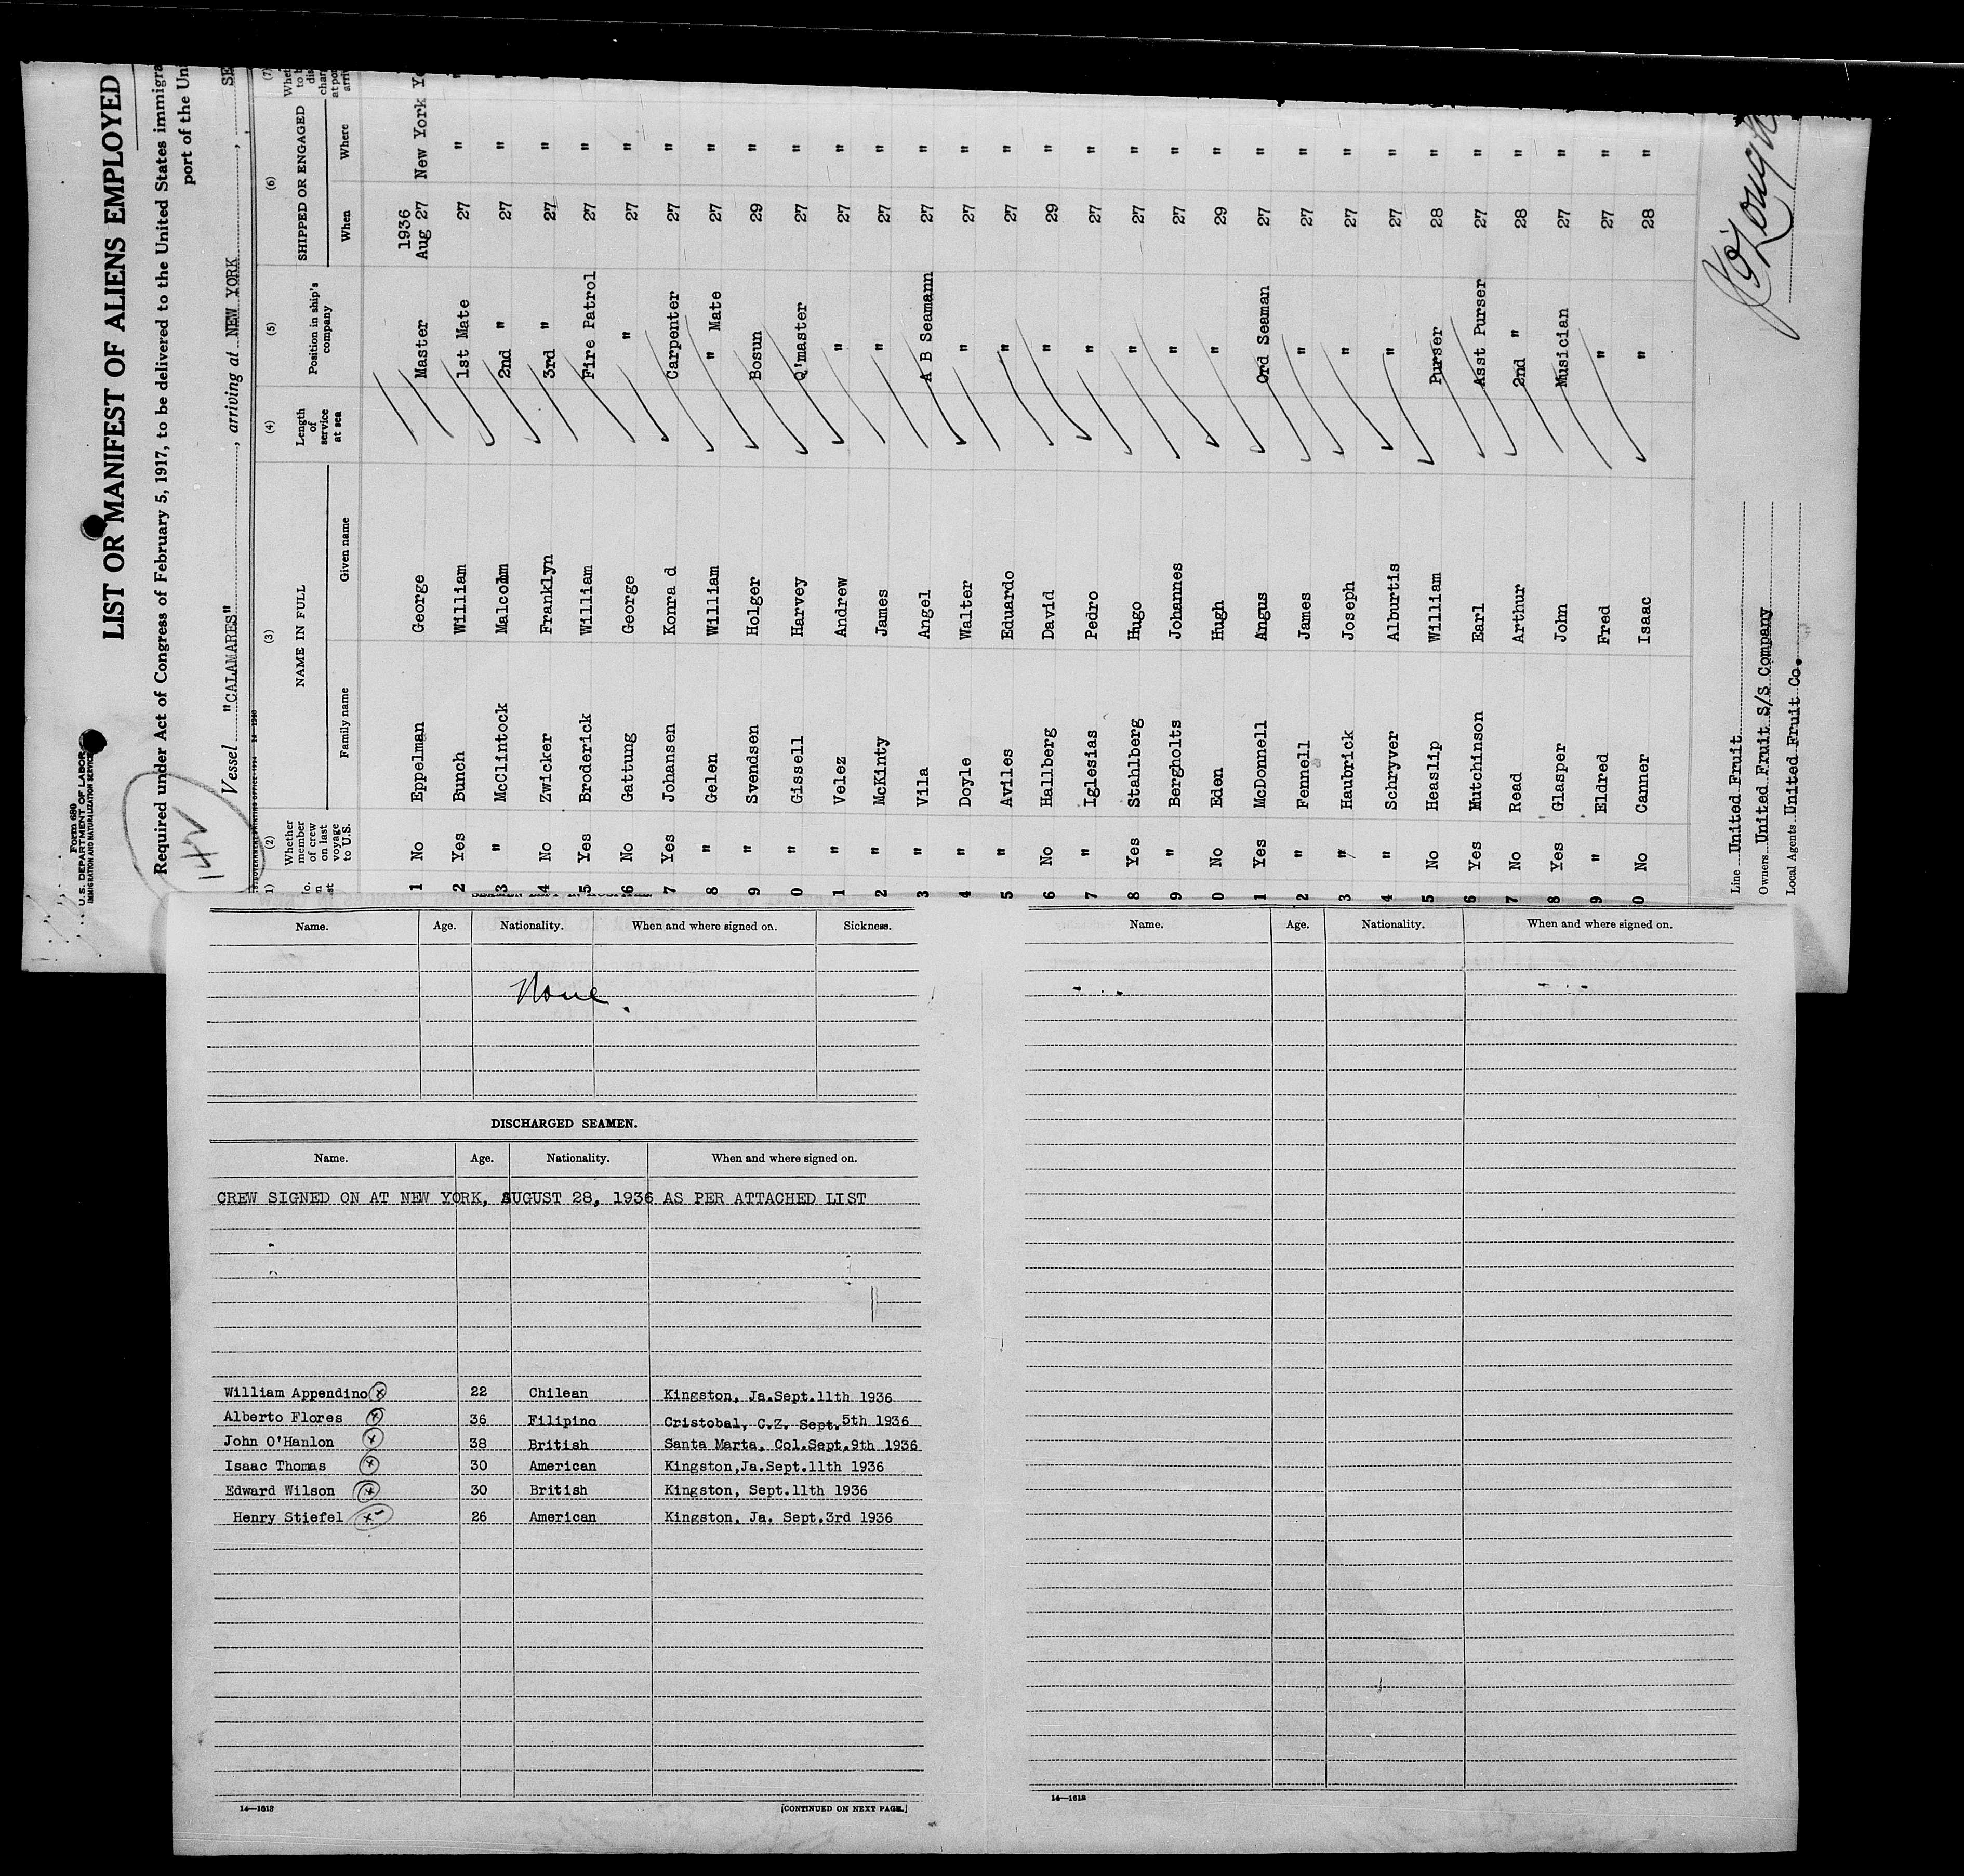 Form 680
U.S. DEPARTMENT OF LABOR
IMMIGRATION AND NATURALIZATION SERVICE
LIST OR MANIFEST OF ALIENS EMPLOYED
Required under Act of Congress of February 5, 1917, to be delivered to the United States immigra
port of the Uni
Vessel "CALAMARES", arriving at NEW YORK, SE
(2) (3) (4) (5) (6) (7)
Whether member of crew on last voyage to U.S. NAME IN FULL Length of service at sea Position in ship's company SHIPPED OR ENGAGED
Family name Given name When Where
1936
1 No Eppelman George Master Aug 27 New York
2 Yes Bunch William 1st Mate 27 "
3 " McClintock Malcolm 2nd " 27 "
4 No Zwicker Franklyn 3rd " 27 "
5 Yes Broderick William Fire Patrol 27 "
6 No Gattung George " 27 "
7 Yes Johansen Konra d Carpenter 27 "
8 " Gelen William " Mate 27 "
9 " Svendsen Holger Bosun 29 "
0 " Gissell Harvey Q'master 27 "
1 " Velez Andrew " 27 "
2 " McKinty James " 27 "
3 " Vila Angel A B Seamann 27 "
4 " Doyle Walter " 27 "
5 " Aviles Eduardo " 27 "
6 No Hallberg David " 29 "
7 " Iglesias Pedro " 27 "
8 Yes Stahlberg Hugo " 27 "
9 " Bergholts Johannes " 27 "
0 No Eden Hugh " 29 "
1 Yes McDonnell Angus Ord Seaman 27 "
2 " Fennell James " 27 "
3 " Haubrick Joseph " 27 "
4 " Schryver Alburtis " 27 "
5 No Heaslip William Purser 28 "
6 Yes Hutchinson Earl Asst Purser 27 "
7 No Read Arthur 2nd " 28 "
8 Yes Glasper John Musician 27 "
9 " Eldred Fred " 27 "
0 No Canner Isaac " 28 "
Line United Fruit
Owners United Fruit S/S Company
Local Agents United Fruit Co.
Name. Age. Nationality. When and where signed on. Sickness.
None.
DISCHARGED SEAMEN.
Name. Age. Nationality. When and where signed on.
CREW SIGNED ON AT NEW YORK, AUGUST 28, 1936 AS PER ATTACHED LIST
William Appendino 22 Chilean Kingston, Ja.Sept.11th 1936
Alberto Flores 36 Filipino Cristobal, C.Z. Sept.5th 1936
John O'Hanlon 38 British Santa Marta, Col.Sept.9th 1936
Isaac Thomas 30 American Kingston,Ja.Sept.11th 1936
Edward Wilson 30 British Kingston, Sept.11th 1936
Henry Stiefel 26 American Kingston, Ja. Sept.3rd 1936
14—1612 [CONTINUED ON NEXT PAGE.]
Name. Age. Nationality. When and where signed on.
14—1612